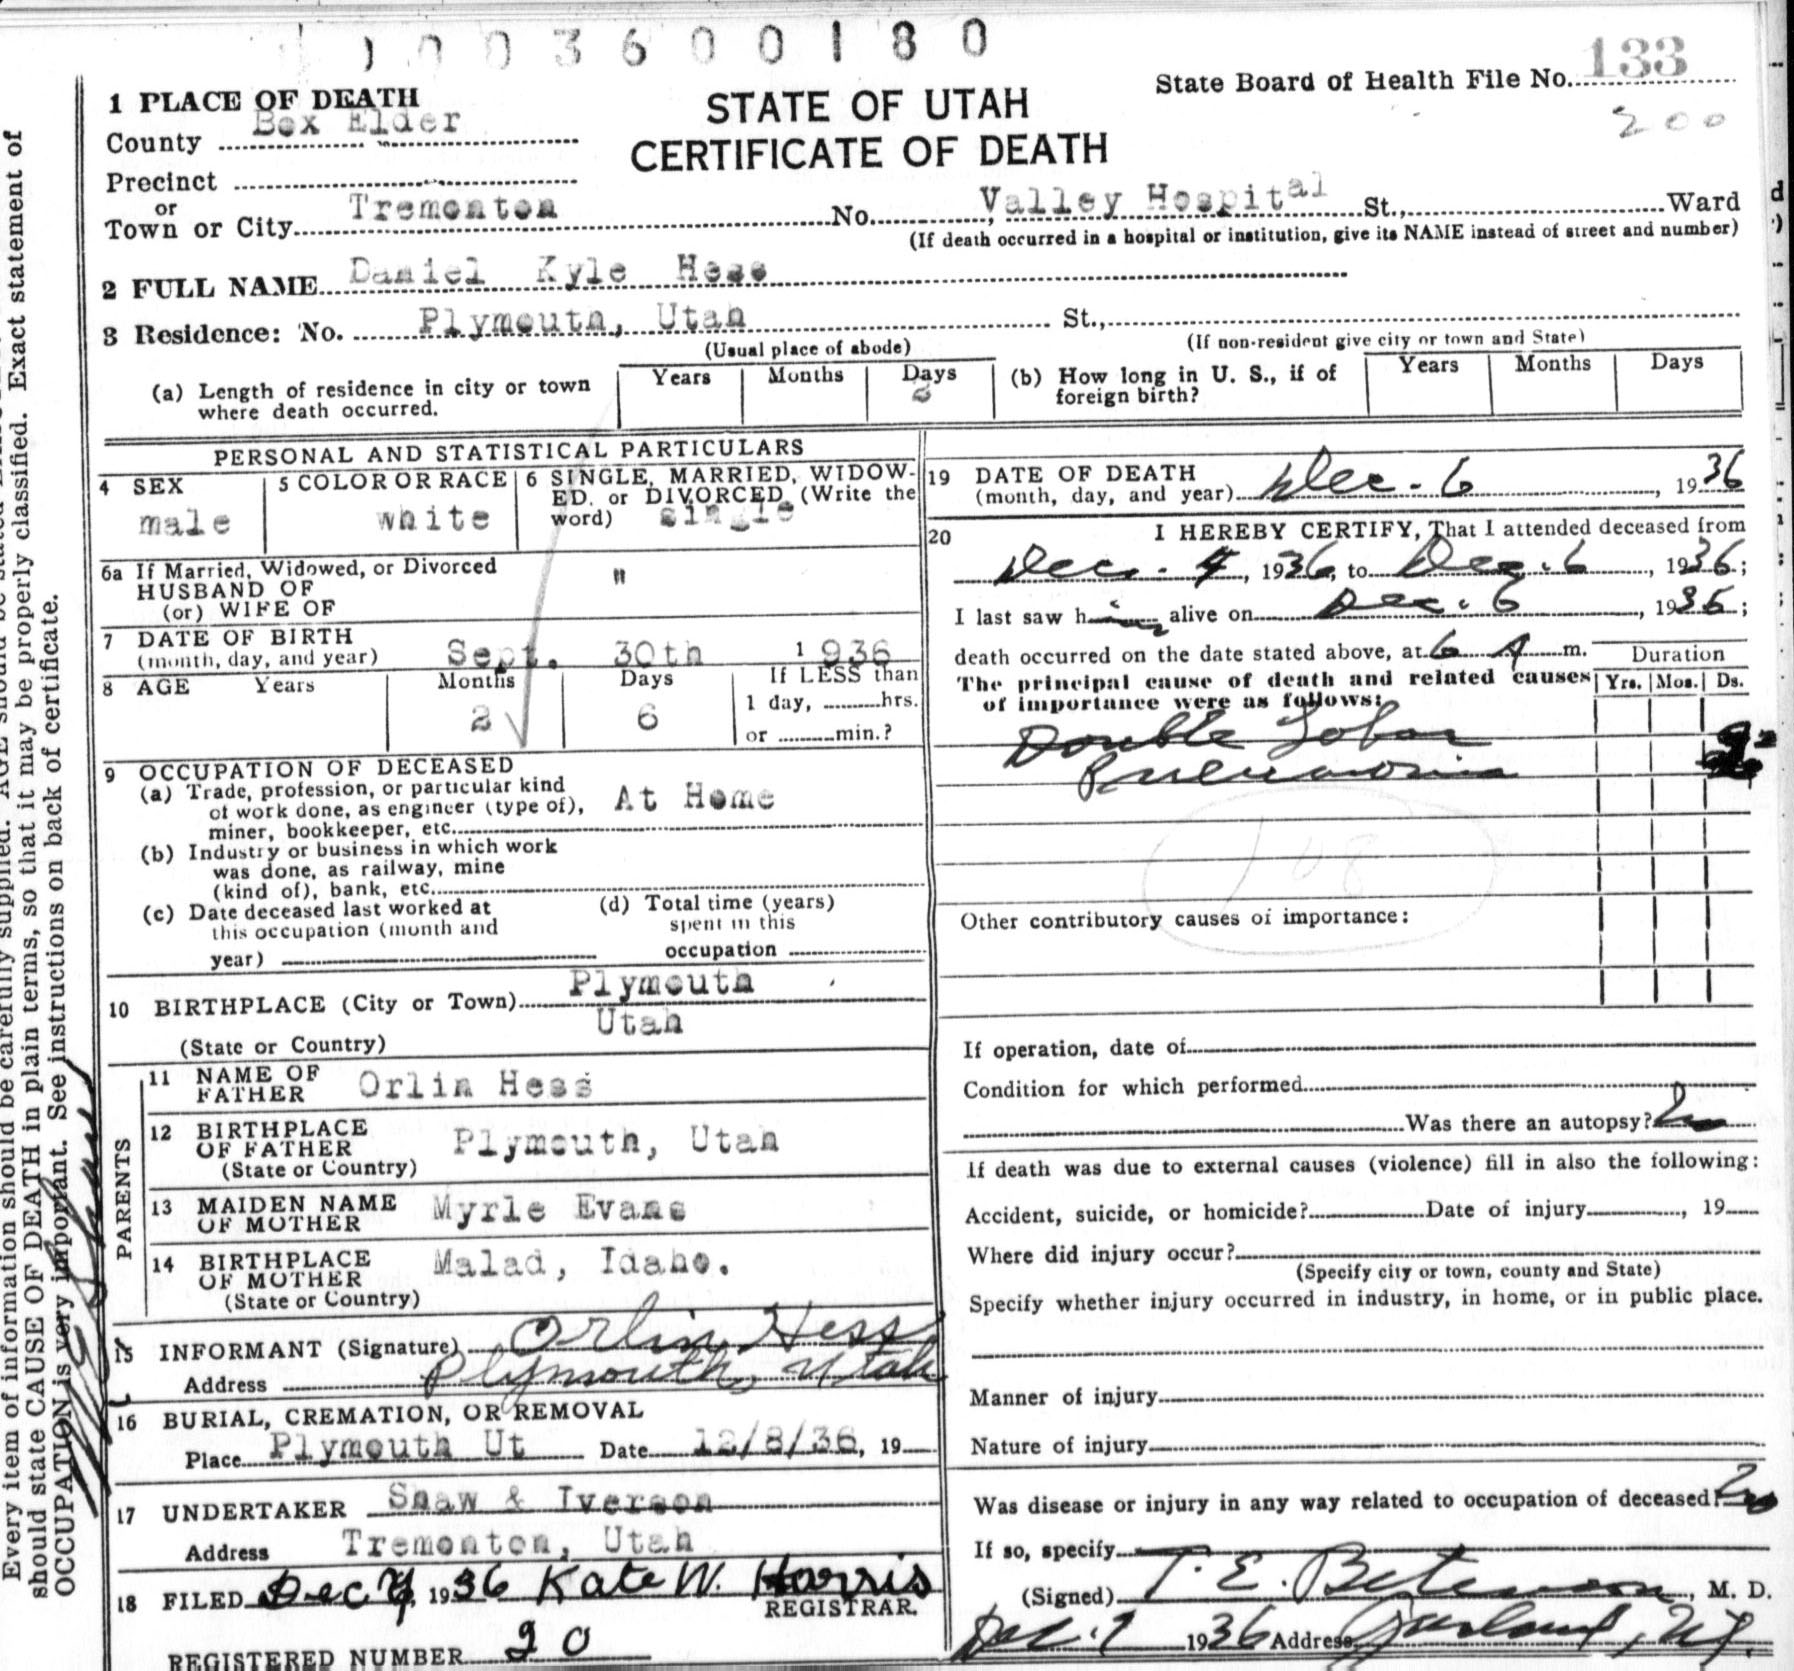 1003600180
State Board of Health File No. 133
200
STATE OF UTAH
CERTIFICATE OF DEATH
1 PLACE OF DEATH
County Box Elder
Precinct
or
Town or City Tremonton No. Valley Hospital St., Ward
(If death occurred in a hospital or institution, give its NAME instead of street and number)
2 FULL NAME Daniel Kyle Hess
3 Residence: No. Plymouth, Utah St.,
(Usual place of abode) (If non-resident give city or town and State)
(a) Length of residence in city or town where death occurred. Years Months Days 2
(b) How long in U. S., if of foreign birth? Years Months Days
PERSONAL AND STATISTICAL PARTICULARS
4 SEX
male
5 COLOR OR RACE
white
6 SINGLE, MARRIED, WIDOW-
ED. or DIVORCED (Write the
word) single
6a If Married, Widowed, or Divorced
HUSBAND OF "
(or) WIFE OF
7 DATE OF BIRTH
(month, day, and year) Sept. 30th 1936
8 AGE Years Months Days If LESS than
2 6 1 day, hrs.
or min.?
9 OCCUPATION OF DECEASED
(a) Trade, profession, or particular kind
of work done, as engineer (type of), At Home
miner, bookkeeper, etc.
(b) Industry or business in which work
was done, as railway, mine
(kind of), bank, etc.
(c) Date deceased last worked at
this occupation (month and
year)
(d) Total time (years)
spent in this
occupation
10 BIRTHPLACE (City or Town) Plymouth
Utah
(State or Country)
PARENTS
11 NAME OF
FATHER Orlin Hess
12 BIRTHPLACE
OF FATHER Plymouth, Utah
(State or Country)
13 MAIDEN NAME
OF MOTHER Myrle Evans
14 BIRTHPLACE
OF MOTHER Malad, Idaho.
(State or Country)
15 INFORMANT (Signature) Orlin Hess
Address Plymouth, Utah
16 BURIAL, CREMATION, OR REMOVAL
Place Plymouth Ut Date 12/8/36, 19
17 UNDERTAKER Shaw & Iverson
Address Tremonton, Utah
18 FILED Dec 7, 1936 Kate W. Harris
REGISTRAR.
REGISTERED NUMBER 20
19 DATE OF DEATH
(month, day, and year) Dec. 6, 1936
20 I HEREBY CERTIFY, That I attended deceased from
Dec. 4, 1936, to Dec. 6, 1936;
I last saw him alive on Dec. 6, 1936;
death occurred on the date stated above, at 6 A m.
The principal cause of death and related causes
of importance were as follows:
Duration
Yrs. Mos. Ds.
Double Lobar
Pneumonia
108
Other contributory causes of importance:
If operation, date of
Condition for which performed
Was there an autopsy? No
If death was due to external causes (violence) fill in also the following:
Accident, suicide, or homicide? Date of injury, 19
Where did injury occur?
(Specify city or town, county and State)
Specify whether injury occurred in industry, in home, or in public place.
Manner of injury
Nature of injury
Was disease or injury in any way related to occupation of deceased? No
If so, specify
(Signed) T. E. Betenson, M. D.
Dec. 7 1936 Address Garland, Ut.
Every item of information should be carefully supplied. AGE should be stated
should state CAUSE OF DEATH in plain terms, so that it may be properly classified. Exact statement of
OCCUPATION is very important. See instructions on back of certificate.